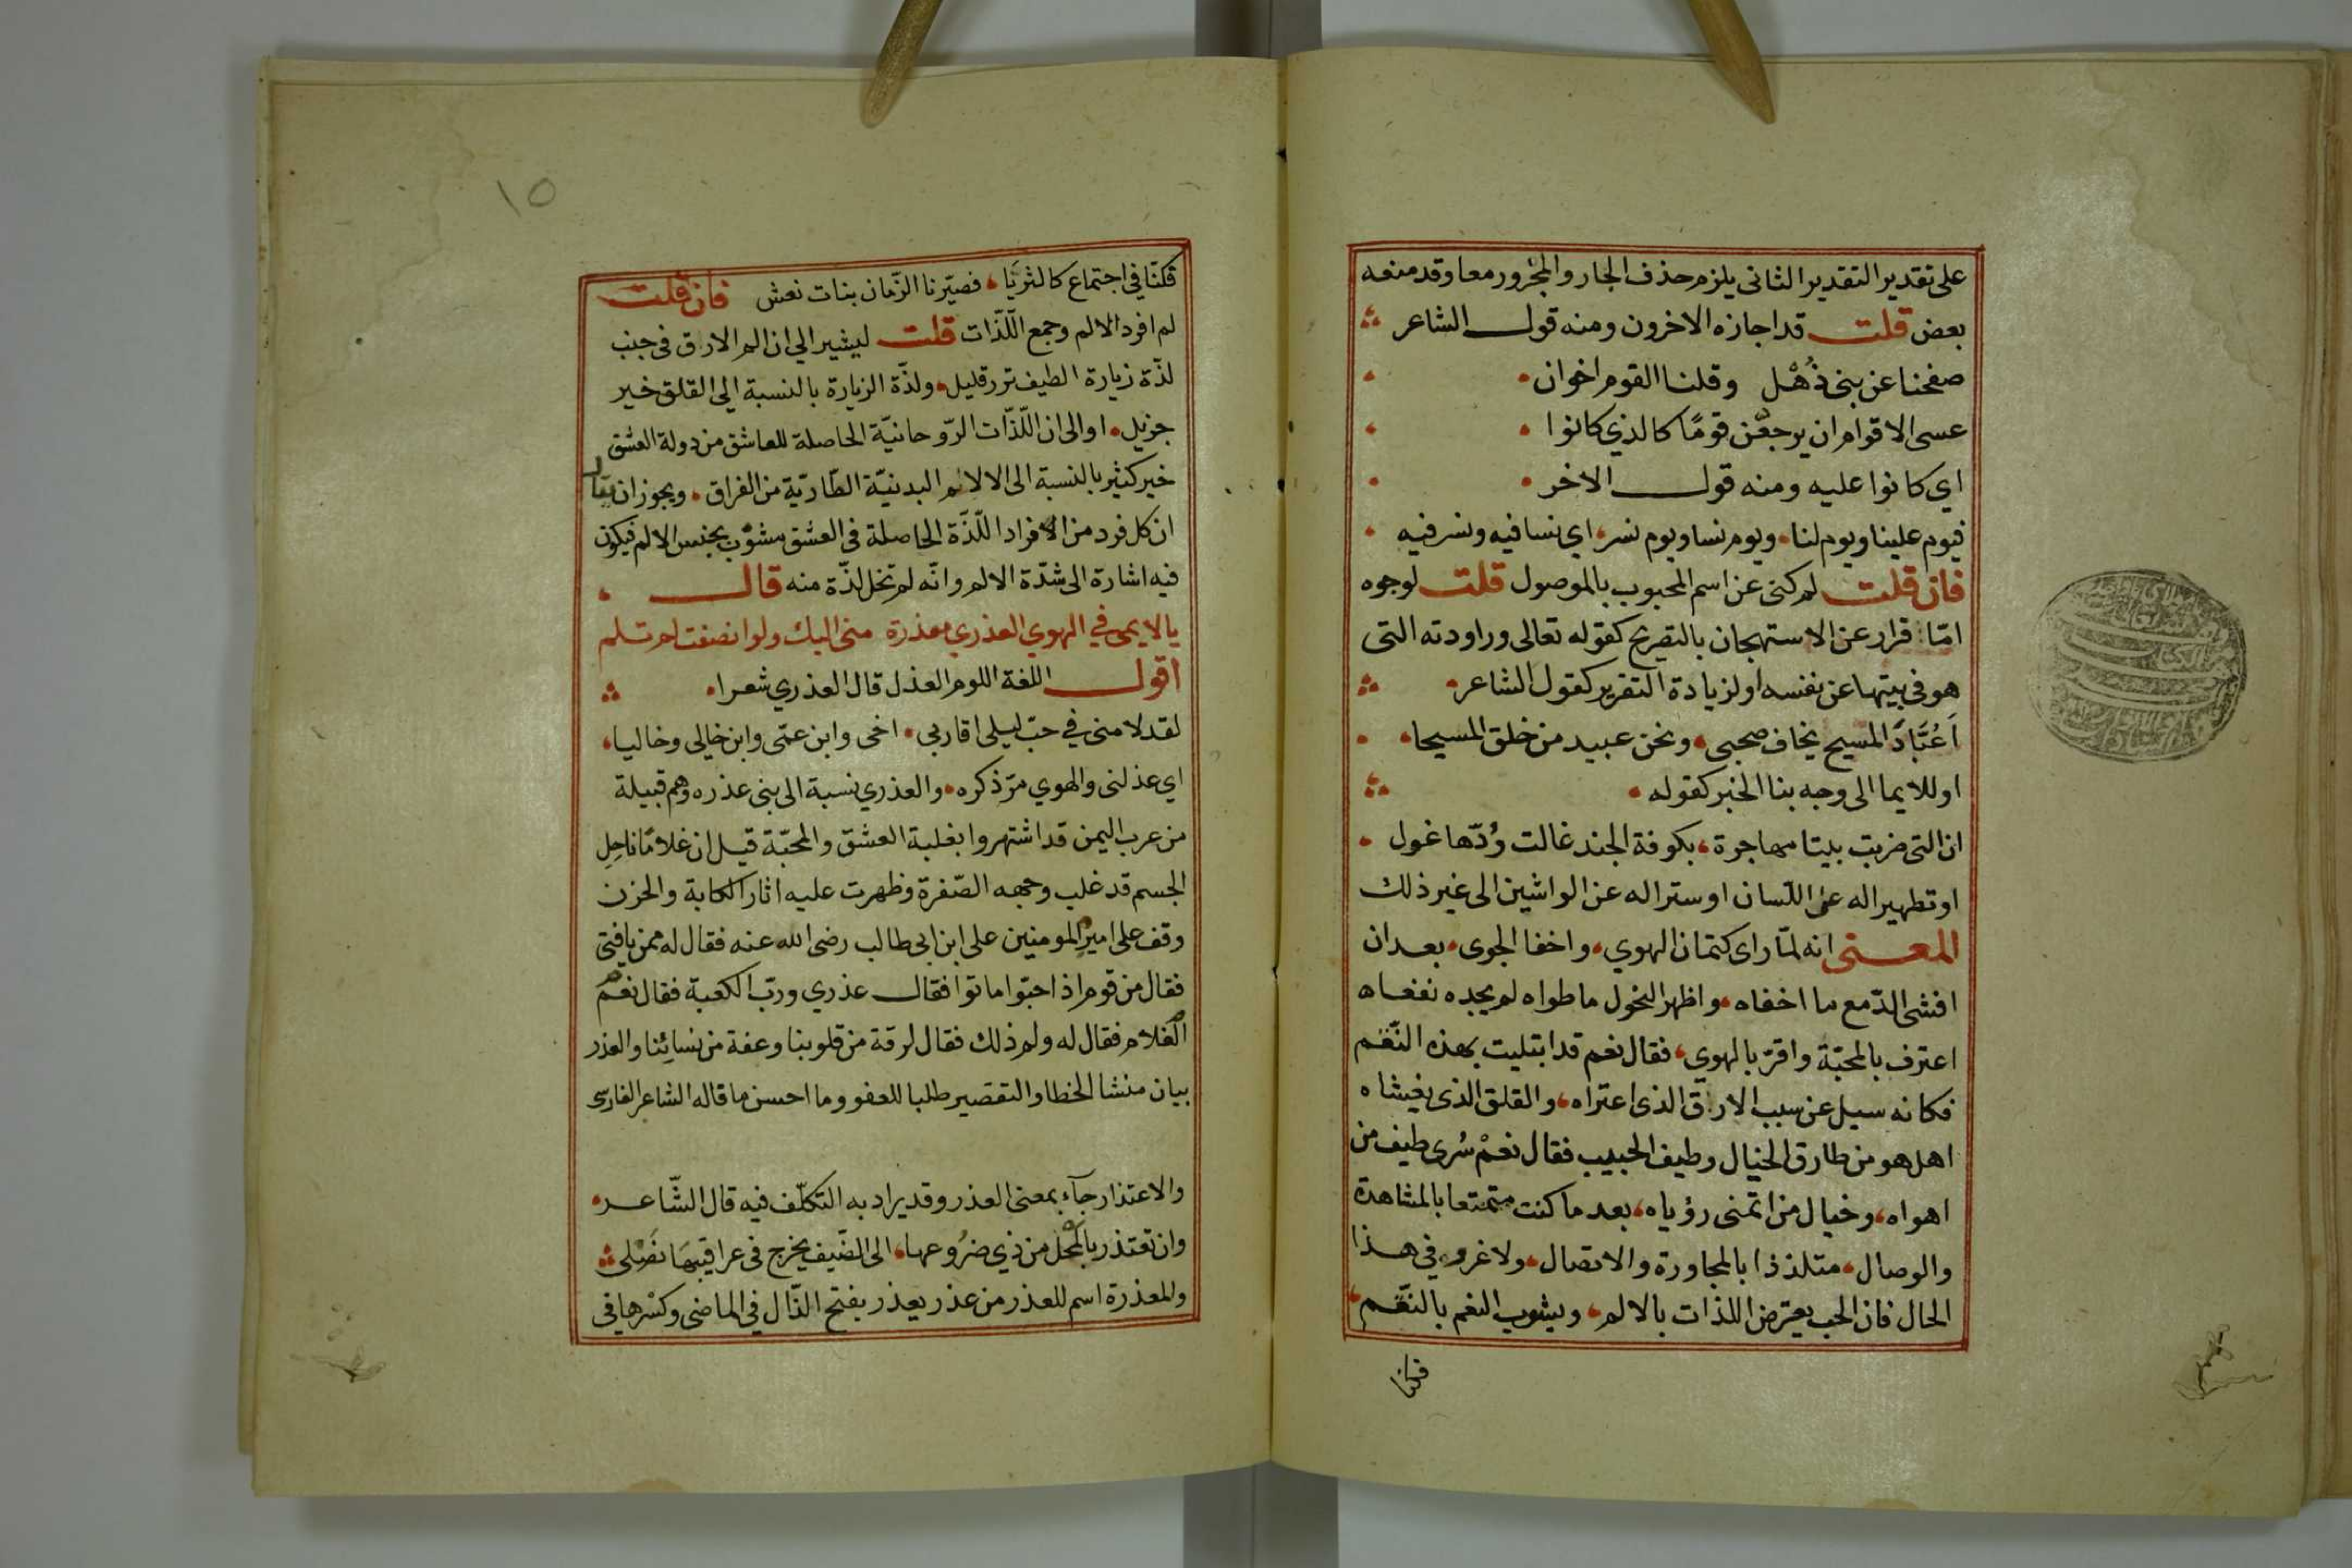 على تقدير التقدير الثانى يلزم حذف الجار والمجرور معا وقد منعه
بعض قلت قد اجازه الاخرون ومنه قول الشاعر
صفحنا عن بنى ذُهْل وقلنا القوم اخوان
عسى الاقوام ان يرجعن قومًا كالذي كانوا
اي كانوا عليه ومنه قول الاخر
فيوم علينا ويوم لنا، ويوم نسا ويوم نسر، اي نسا فيه ونسر فيه
فان قلت لم كنى عن اسم المحبوب بالموصول قلت لوجوه
امّا فرار عن الاستهجان بالتصريح كقوله تعالى وراودته التى
هو فى بيتها عن نفسه او لزيادة التقرير كقول الشاعر
اَعُبَّادَ المسيح يخاف صحبى، ونحن عبيد من خلق المسيحا،
او للايما الى وجه بنا الخبر كقوله
ان التى ضربت بيتا مهاجرة، بكوفة الجند غالت وُدّها غول
او تطهيرا له عن اللّسان او سترا له عن الواشين الى غير ذلك
المعنى انه لمّا راى كتمان الهوي، واخفا الجوى، بعد ان
افشى الدّمع ما اخفاه، واظهر النحول ما طواه لم يجده نفعاه
اعترف بالمحبّة واقرّ بالهوي، فقال نعم قد ابتليت بهذه النّقم
فكانه سيل عن سبب الارق الذى اعتراه، والقلق الذى يغشاه
اهل هو من طارق الخيال وطيف الحبيب فقال نعمْ سُرى طيف من
اهواه، وخيال من اتمنى رؤياه، بعد ما كنت متمتعا بالمشاهدة
والوصال، متلذذا بالمجاورة والاتصال، ولا غرو في هذا
الحال فان الحب يعترض اللذات بالالم، ويشوب النعم بالنّقم،
فكنا
١٥
فكنّا في اجتماع كالثريَّا، فصيّرنا الزّمان بنات نعش فان قلت
لم افرد الالم وجمع اللّذّات قلت ليشير الي ان الم الارق فى جنب
لذّة زيارة الطيف نزر قليل، ولذّة الزيارة بالنسبة الي القلق خير
جزيل، او الى ان اللّذّات الرّوحانيّة الحاصلة للعاشق من دولة العشق
خير كثير بالنسبة الى الالائم البدنيّة الطّاريّة من الفراق، ويجوز ان يقال
ان كل فرد من الافراد اللّذّة الحاصلة فى العشق مشوب بجنس الالم فيكون
فيه اشارة الى شدّة الالم وانّه لم تخل لذّة منه قال
يا لايمى في الهوي العذري معذرة منى اليك ولو انصفت لم تلم
اقول اللغة اللوم العذل قال العذري شعرا
لقد لامنى في حبّ ليلى اقاربي، اخى وابن عمّى وابن خالي وخاليا،
اي عذلنى والهوي مرّ ذكره، والعذري نسبة الى بنى عذره وهم قبيلة
من عرب اليمن قد اشتهروا بغلبة العشق والمحبّة قيل ان غلامًا ناحِلِ
الجسم قد غلب وجهه الصّفرة وظهرت عليه اثار الكابة والحزن
وقف على امير المومنين على ابن ابى طالب رضى الله عنه فقال له ممن يا فتى
فقال من قوم اذا احبّوا ماتوا فقال عذري وربّ الكعبة فقال نعم
الغلام فقال له ولم ذلك فقال لرقة من قلوبنا وعفة من نسائنا والعذر
بيان منشا الخطا والتقصير طلبا للعفو وما احسن ما قاله الشاعر الفارسى
والاعتذار جآء بمعنى العذر وقد يراد به التكلّف فيه قال الشّاعر
وان تعتذر بالمحل من ذي ضرُوعها، الى الضّيف يخرج فى عراقيبها نَصْلى
والمعذرة اسم للعذر من عذر يعذر بفتح الذّال في الماضى وكسرها فى